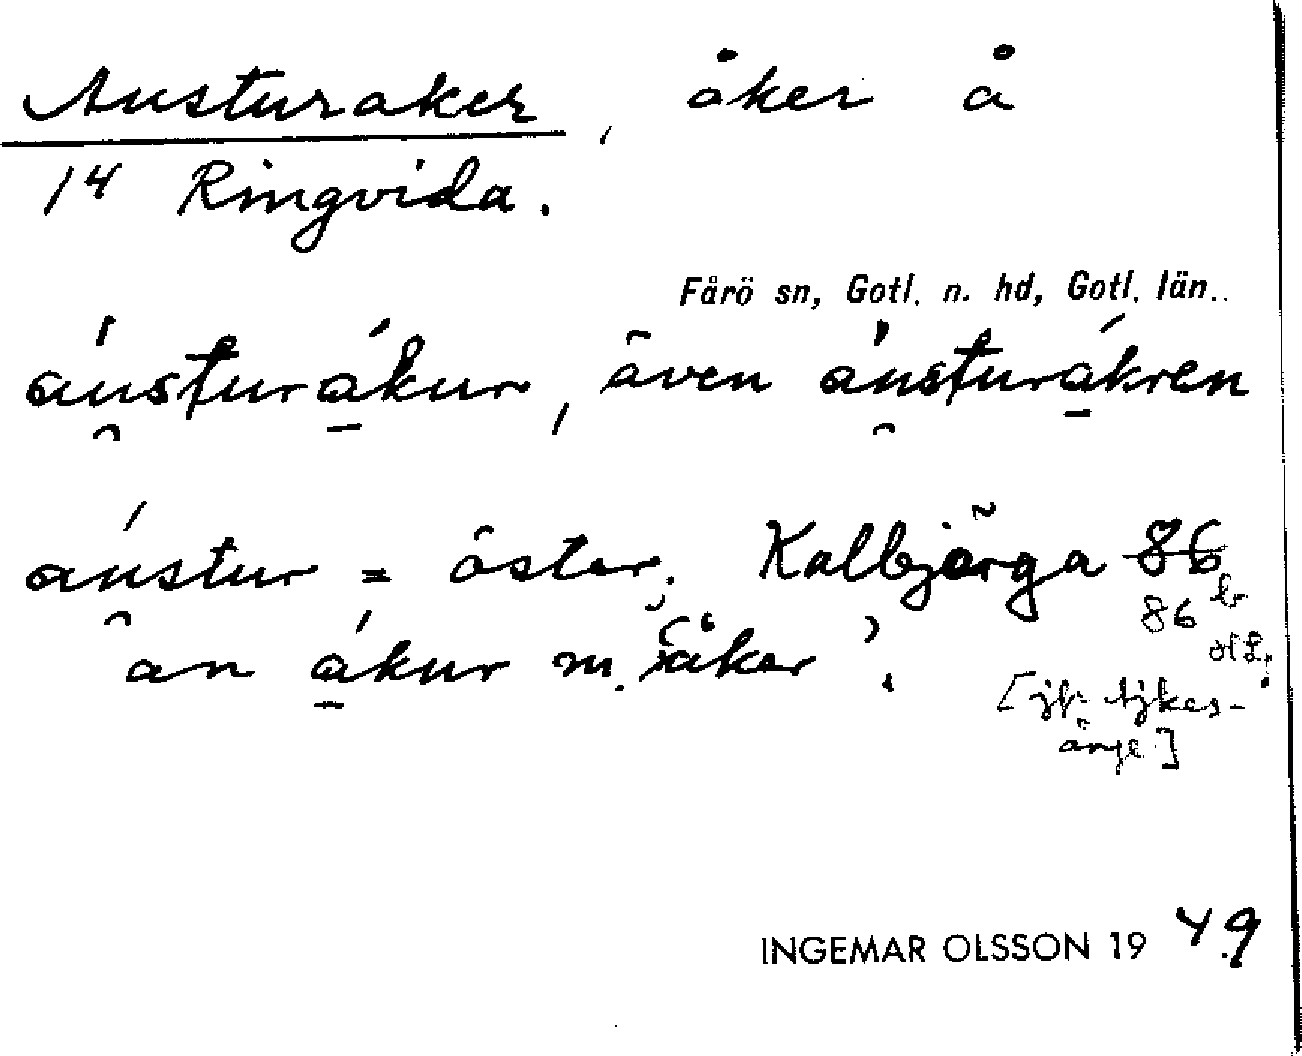 Austuraker, åker å
14 Ringvida.
Fårö sn, Gotl. n. hd, Gotl. län..
áusturákur, även áusturákren
áustur = öster; Kalbjärga 86
86 b
an ákur m. 'åker'.
[jfr Ajkes-
änge]
INGEMAR OLSSON 1949